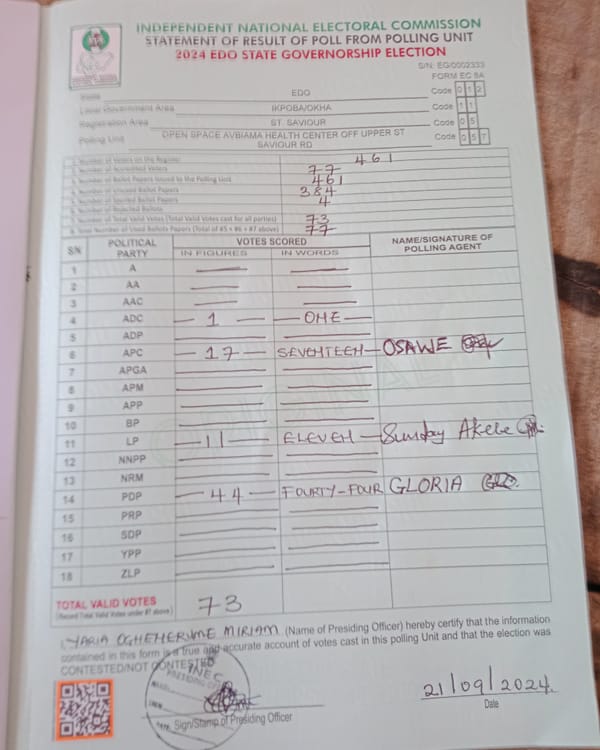 INDEPENDENT NATIONAL ELECTORAL COMMISSION
STATEMENT OF RESULT OF POLL FROM POLLING UNIT
2024 EDO STATE GOVERNORSHIP ELECTION
S/N: EG/0002333
FORM EC 8A
State EDO Code 0 1 2
Local Government Area IKPOBA/OKHA Code 1 1
Registration Area ST. SAVIOUR Code 0 5
Polling Unit OPEN SPACE AVBIAMA HEALTH CENTER OFF UPPER ST SAVIOUR RD Code 0 5 7
1. Number of Voters on the Register 461
2. Number of Accredited Voters 77
3. Number of Ballot Papers Issued to the Polling Unit 461
4. Number of Unused Ballot Papers 384
5. Number of Spoiled Ballot Papers 4
6. Number of Rejected Ballots
7. Number of Total Valid Votes (Total Valid Votes cast for all parties) 73
8. Total Number of Used Ballots Papers (Total of #5 + #6 + #7 above) 77
SN POLITICAL PARTY VOTES SCORED NAME/SIGNATURE OF POLLING AGENT
IN FIGURES IN WORDS
1 A
2 AA
3 AAC
4 ADC 1 ONE
5 ADP
6 APC 17 SEVENTEEN OSAWE
7 APGA
8 APM
9 APP
10 BP
11 LP 11 ELEVEN Sunday Akele
12 NNPP
13 NRM
14 PDP 44 FOURTY-FOUR GLORIA
15 PRP
16 SDP
17 YPP
18 ZLP
TOTAL VALID VOTES 73
(Record Total Valid Votes under #7 above)
OGHENERUME MIRIAM (Name of Presiding Officer) hereby certify that the information
contained in this form is a true and accurate account of votes cast in this polling Unit and that the election was
CONTESTED/NOT CONTESTED
INEC
PRESIDING
21/09/2024
Sign/Stamp of Presiding Officer
Date